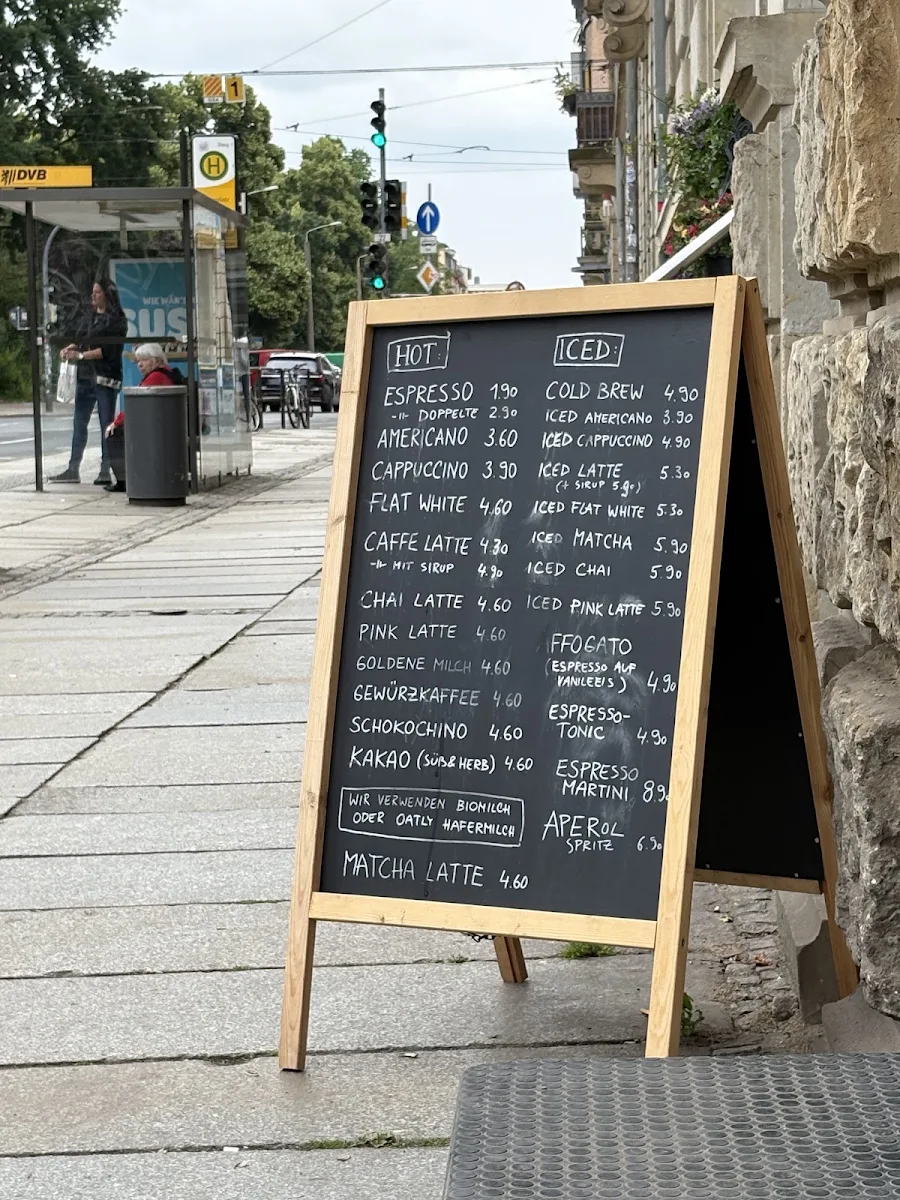 1
DVB
H
WIE WÄR'S
SUS
HOT:
ESPRESSO 1.90
-II- DOPPELTE 2.90
AMERICANO 3.60
CAPPUCCINO 3.90
FLAT WHITE 4.60
CAFFE LATTE 4.30
-II- MIT SIRUP 4.90
CHAI LATTE 4.60
PINK LATTE 4.60
GOLDENE MILCH 4.60
GEWÜRZKAFFEE 4.60
SCHOKOCHINO 4.60
KAKAO (SÜß&HERB) 4.60
WIR VERWENDEN BIOMILCH
ODER OATLY HAFERMILCH
MATCHA LATTE 4.60
ICED:
COLD BREW 4.90
ICED AMERICANO 3.90
ICED CAPPUCCINO 4.90
ICED LATTE 5.30
(+ SIRUP 5.90)
ICED FLAT WHITE 5.30
ICED MATCHA 5.90
ICED CHAI 5.90
ICED PINK LATTE 5.90
FFOGATO
(ESPRESSO AUF
VANILEEIS) 4.90
ESPRESSO-
TONIC 4.90
ESPRESSO
MARTINI 8.90
APEROL
SPRITZ 6.50